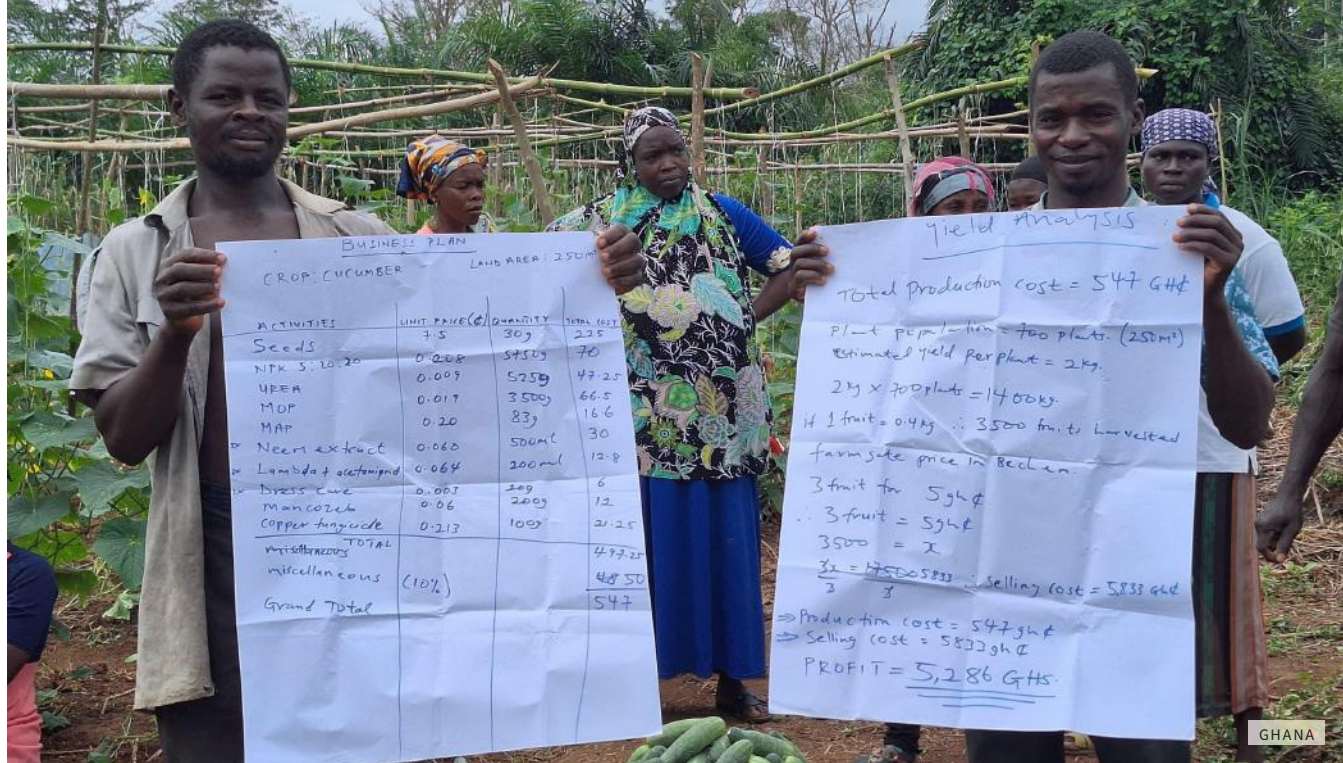 BUSINESS PLAN
CROP: CUCUMBER LAND AREA: 250m²
ACTIVITIES UNIT PRICE(₵) QUANTITY TOTAL COST
Seeds 7.5 30g 225
NPK 5:20:20 0.208 5750g 70
UREA 0.009 5259 47.25
MOP 0.019 3500g 66.5
MAP 0.20 83g 16.6
Neem extract 0.060 500ml 30
Lambda + acetamiprid 0.064 200ml 12.8
Dress care 0.003 20g 6
Mancozeb 0.06 200g 12
Copper fungicide 0.213 100g 21.25
TOTAL
miscellaneous 497.25
miscellaneous (10%) 50
Grand Total 547
Yield Analysis
Total production cost = 547 GH₵
Plant population = 700 plants. (250m²)
estimated yield per plant = 2kg.
2kg x 700 plants = 1400kg.
if 1 fruit = 0.4kg ∴ 3500 fruits harvested
farm gate price in Bechem.
3 fruit for 5gh₵
∴ 3 fruit = 5gh₵
3500 = x
3x/3 = 17500 5833/3 ∴ Selling cost = 5,833 Gh₵
⇒ Production cost = 547 gh₵
⇒ Selling cost = 5833 gh₵
PROFIT = 5,286 GHS.
GHANA